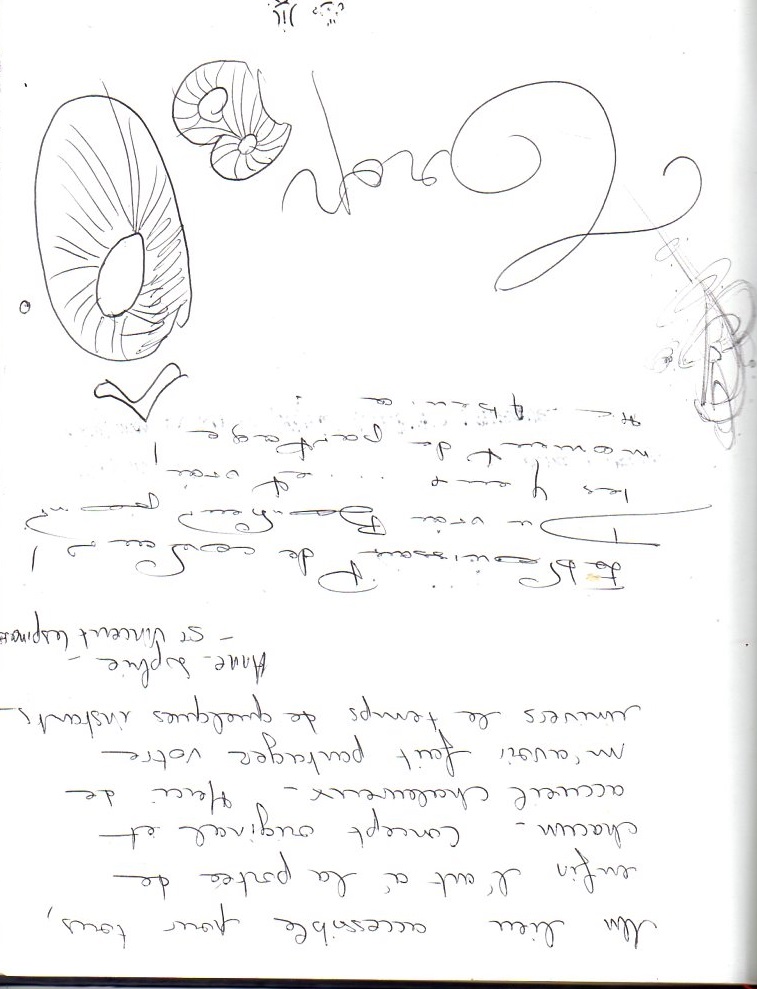 Un lieu accessible pour tous,
enfin l'art à la portée de
chacun - Concept original et
accueil chaleureux - Merci de
m'avoir fait partager votre
univers le temps de quelques instants -
Anne-Sophie -
- St Vincent Lespinasse
Eblouissant de couleurs !
Du vrai Bonheur pour
les yeux ... et vrai
moment de partage !
Trop